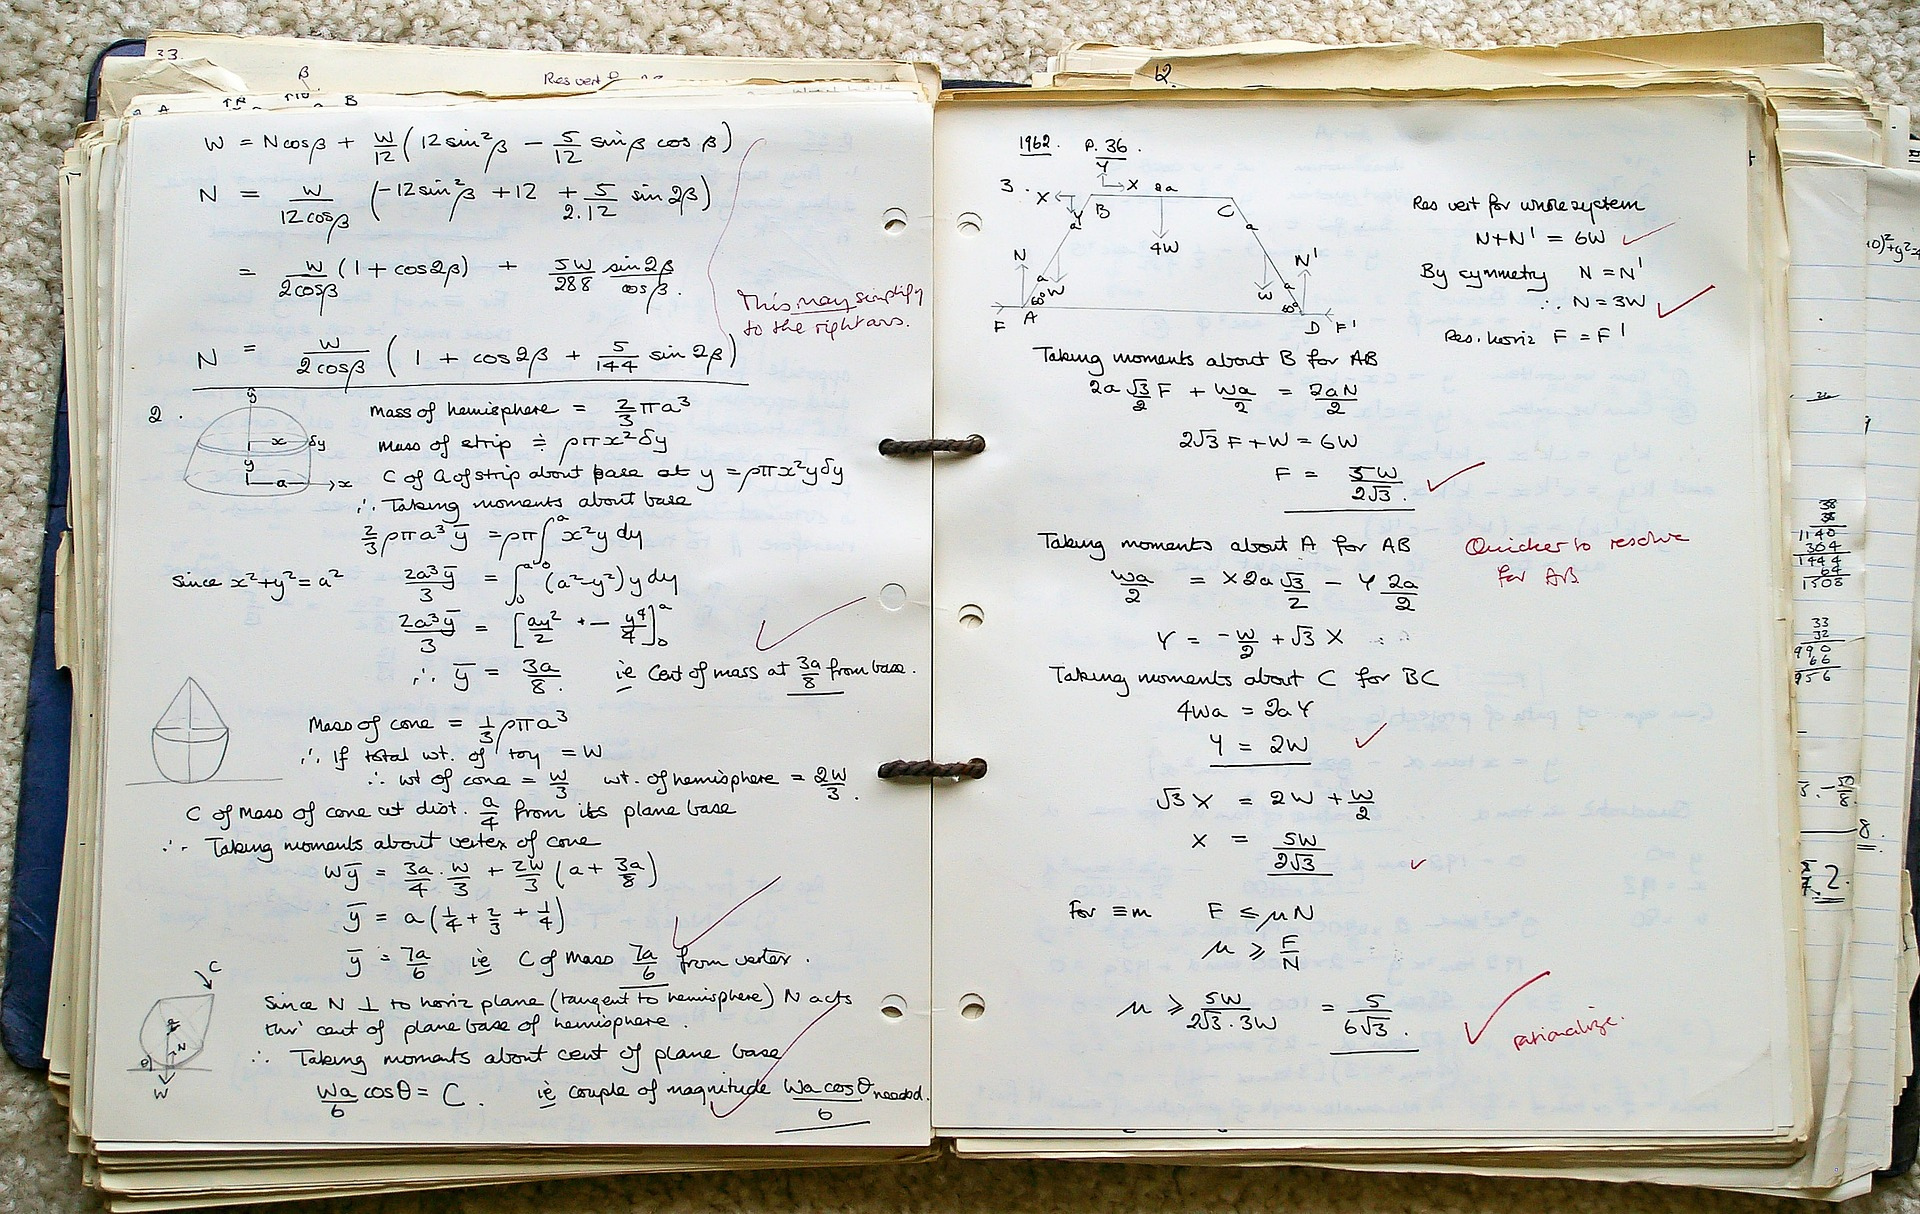 33.
Res vert
β
A
B
W = N cosβ + W/12 (12 sin²β − 5/12 sinβ cos β)
N = W/12cosβ (−12 sin²β + 12 + 5/2.12 sin 2β)
= W/2cosβ (1 + cos2β) + 5W/288 sin2β/cosβ.
This may simplify
to the right ans.
N = W/2cosβ (1 + cos2β + 5/144 sin 2β)
2.
ȳ
x δy
y
a → x
Mass of hemisphere = 2/3 πa³
Mass of strip ≑ ρπx²δy
C of G of strip about base at y = ρπx²yδy
∴ Taking moments about base
2/3 ρπa³ȳ = ρπ∫ᵃ x²y dy
Since x²+y²=a² 2a³ȳ/3 = ∫₀ᵃ (a²−y²) y dy
2a³ȳ/3 = [ay²/2 − y⁴/4]₀ᵃ
∴ ȳ = 3a/8. ie Cent of mass at 3a/8 from base.
Mass of cone = 1/3 ρπa³
∴ If total wt. of toy = W
∴ wt of cone = W/3 wt. of hemisphere = 2W/3.
C of Mass of cone at dist. a/4 from its plane base
∴ Taking moments about vertex of cone
Wȳ = 3a/4 . W/3 + 2W/3 (a + 3a/8)
ȳ = a(1/4 + 2/3 + 1/4)
ȳ = 7a/6 ie C of Mass 7a/6 from vertex.
C
N
θ
W
Since N ⊥ to horiz plane (tangent to hemisphere) N acts
thr' cent of plane base of hemisphere.
∴ Taking moments about cent of plane base
Wa/6 cosθ = C. ie couple of magnitude Wa cosθ/6 needed.
12
1962. P. 36.
3.
Y
X X 2a
Y B C
a a
4W
N N'
a W W a
60° 60°
F A D F'
Res vert for whole system
N+N' = 6W
By symmetry N = N'
∴ N = 3W
Res. horiz F = F'
Taking moments about B for AB
2a √3/2 F + Wa/2 = 2aN/2
2√3 F + W = 6W
F = 5W/2√3.
Taking moments about A for AB
Quicker to resolve
for AB
Wa/2 = X 2a √3/2 − Y 2a/2
Y = −W/2 + √3 X
Taking moments about C for BC
4Wa = 2aY
Y = 2W
√3 X = 2W + W/2
X = 5W/2√3
for ≡m F ≤ μN
μ ⩾ F/N
μ ⩾ 5W/2√3 . 3W = 5/6√3.
rationalize.
38
38
1140
304
1444
64
1508
33
32
990
66
956
8.
2.